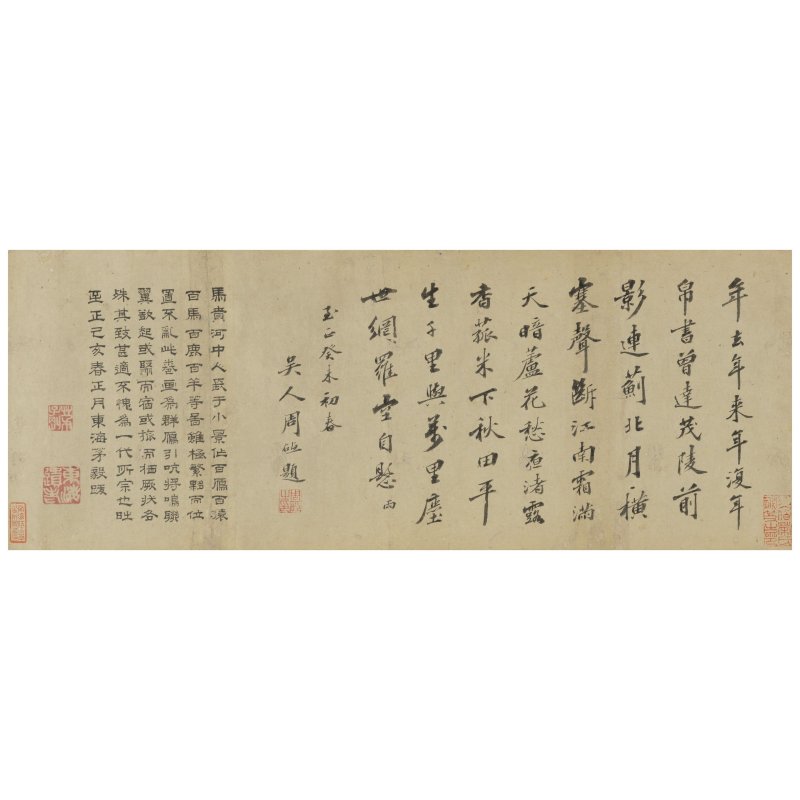 年去年来年復年
帛書曾達茂陵前
影連薊北月橫
塞聲斷江南霜滿
天暗蘆花愁夜渚露
香菰米下秋田平
生千里與萬里塵
世網羅空自懸雨
至正癸未初春
吳人周 題
馬賁河中人長于小景作百鴈百猿
百馬百鹿百羊等圖雖極繁夥而位
置不亂此卷畫為群鴈引吭將鳴聯
翼欲起或聚而宿或旅而栖厥狀各
殊其致甚適不愧為一代所宗也時
至正己亥春正月東海茅毅跋